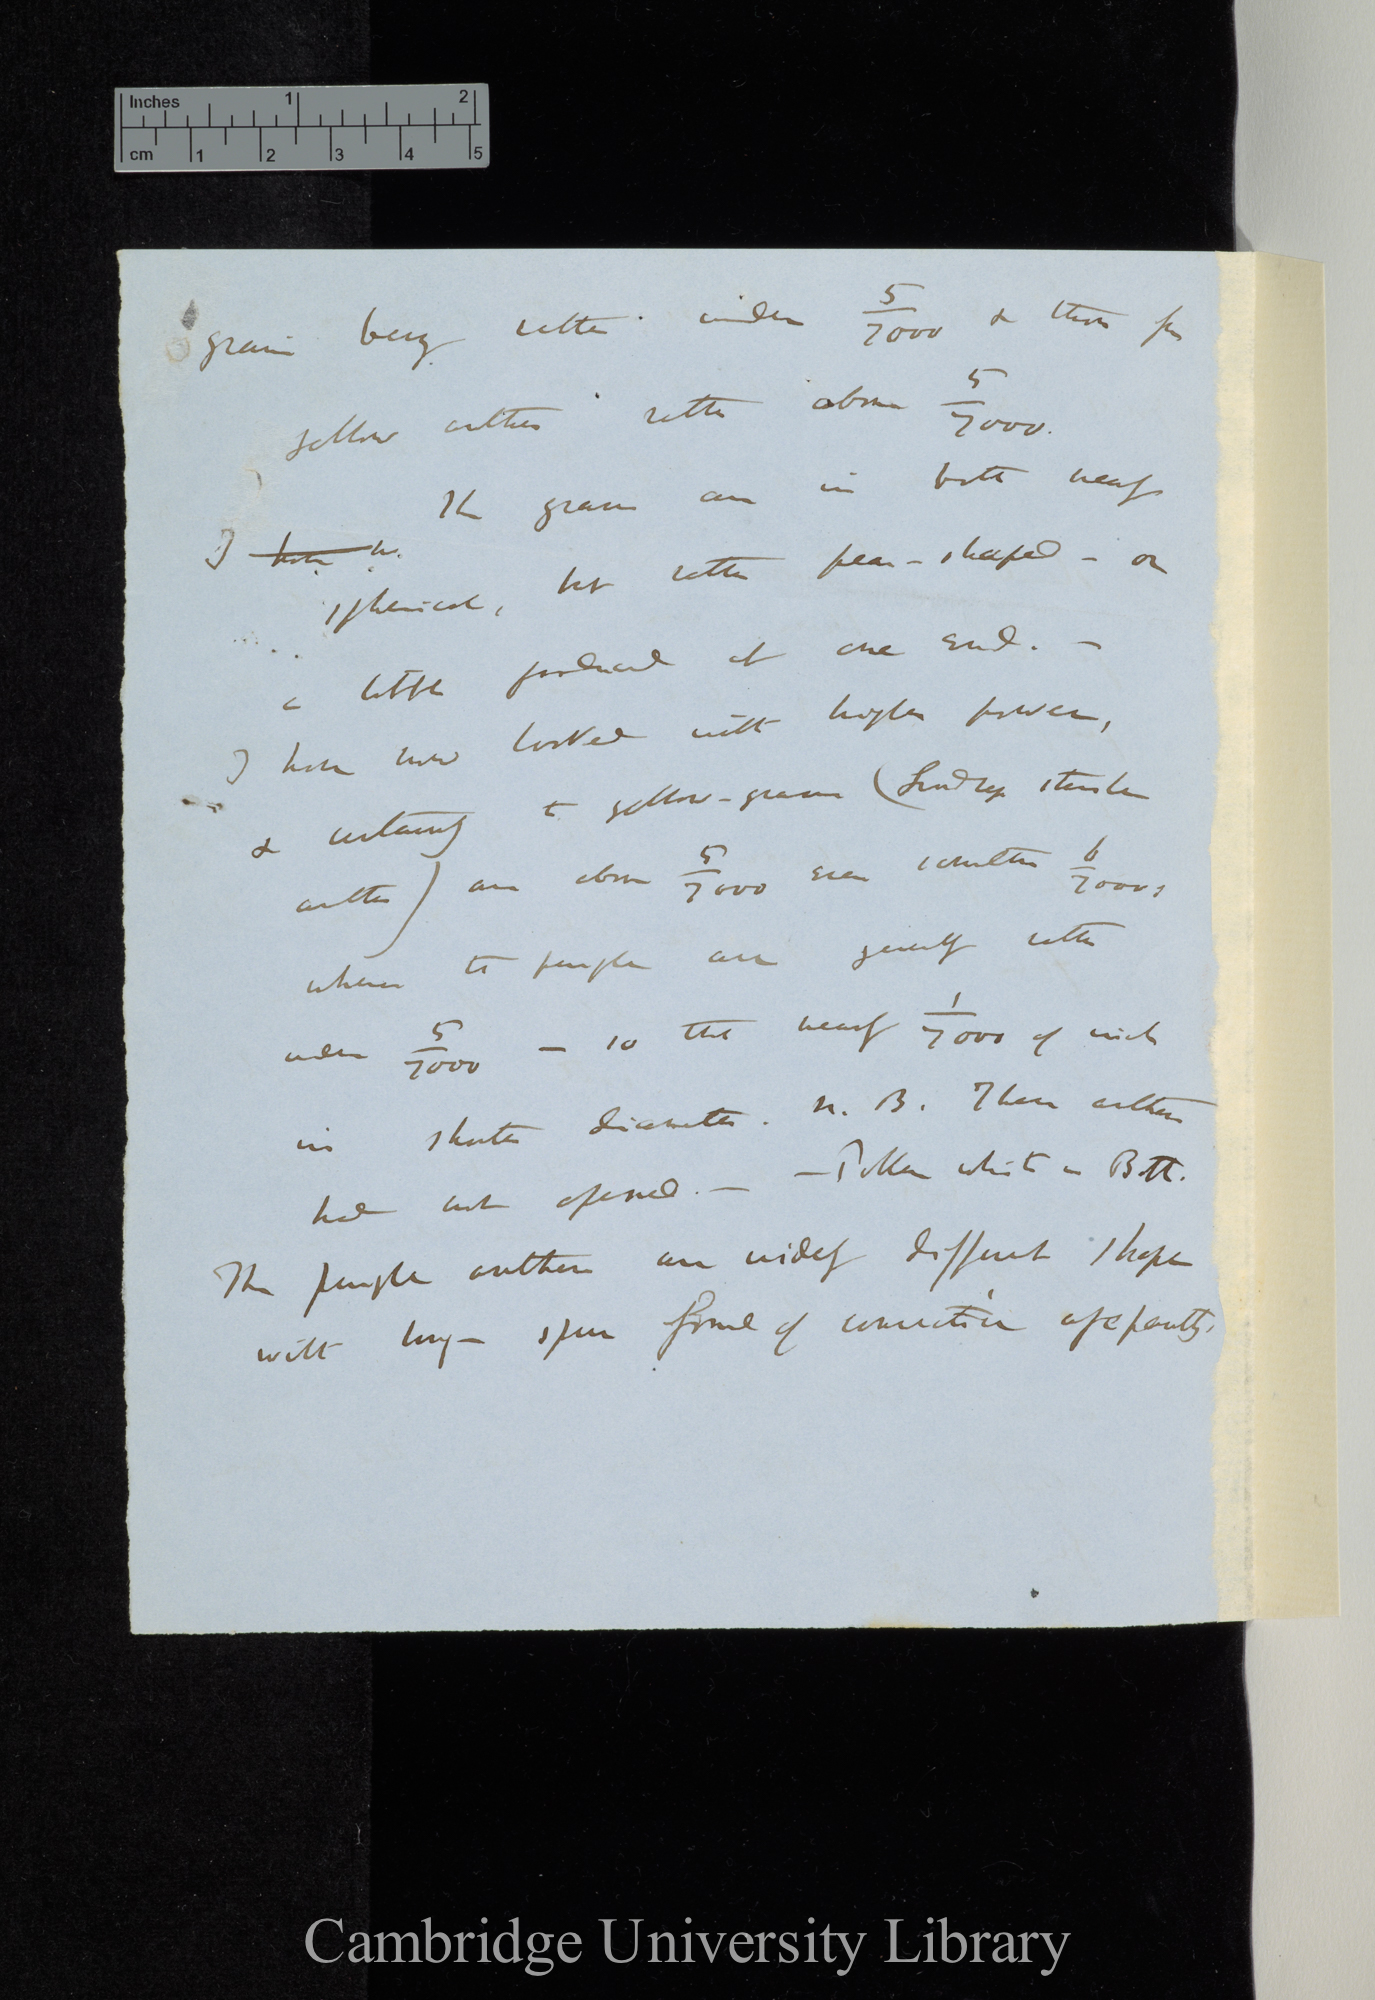 Inches 1 2
cm 1 2 3 4 5
grain being rather under 5/7000 & those from
yellow anthers rather above 5/7000.
The grains are in both nearly
I have n.
spherical, but rather pear-shaped – or
a little produced at one end. –
I have now looked with higher power,
& certainly the yellow-grains ( stamen
anthers) are above 5/7000 even sometimes 6/7000,
whereas the purple are generally rather
under 5/7000 – so that nearly 1/7000 of inch
in shorter diameter. N. B. These anthers
had not opened. – – Pollen white in Both.
The purple anthers are widely different shape
with long – open of connective apparently.
Cambridge University Library